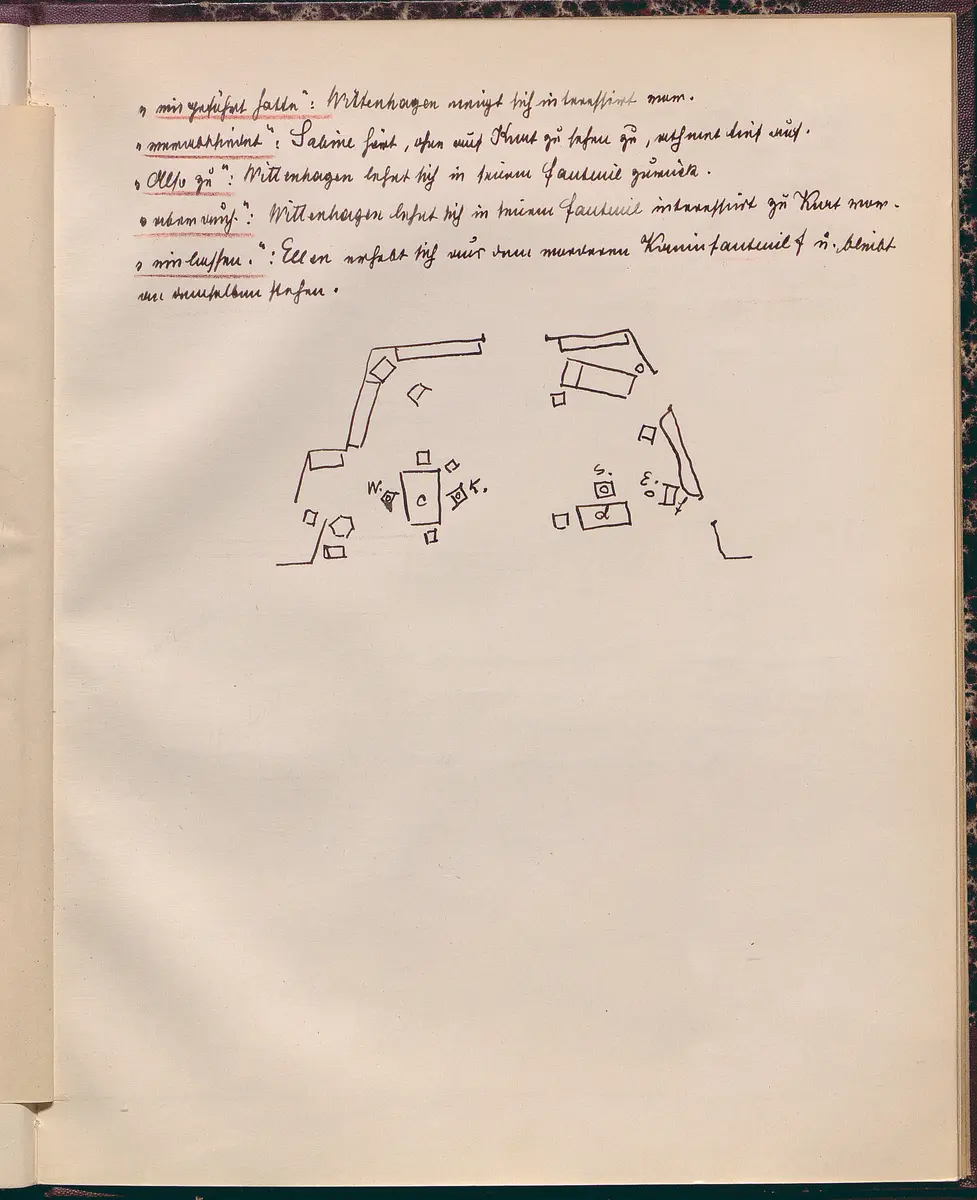 „ eingeführt hatte“: Wittenhagen neigt sich interessirt vor.
„ verabschiedet“: Sabine hört, ohne auf Kurt zu sehen zu, athmet tief auf.
„ Also zu“: Wittenhagen lehnt sich in seinem Fauteuil zurück.
„ aber auch.“: Wittenhagen lehnt sich in seinem Fauteuil interessirt zu Kurt vor.
„ einlassen.“: Ellen erhebt sich aus dem vorderen Kaminfauteuil f u. bleibt
an demselben stehen.
W.
c
K.
S.
d
E.
f